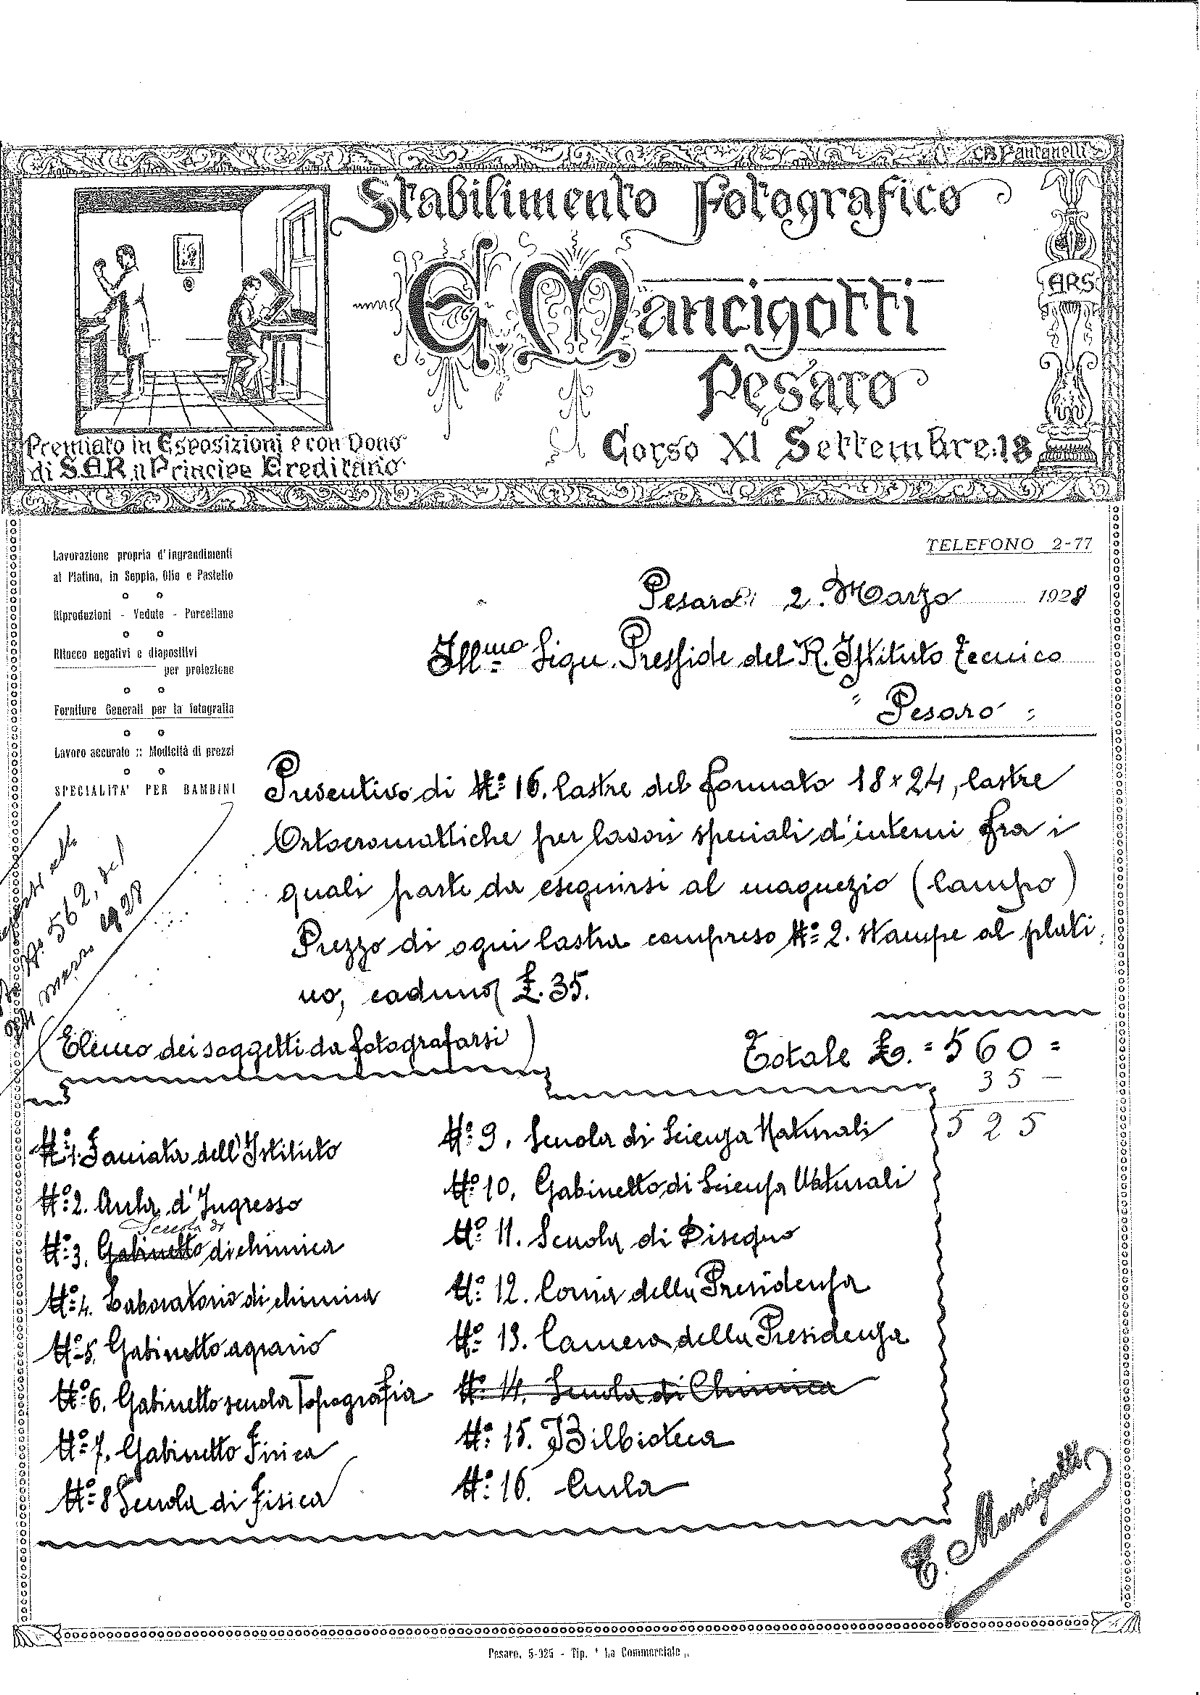 C. Pantanelli
Stabilimento Fotografico
E. Mancigotti
Pesaro
Corso XI Settembre: 18
ARS
Premiato in Esposizioni e con Dono
di S.A.R. il Principe Ereditario
TELEFONO 2-77
Lavorazione propria d'ingrandimenti
al Platino, in Seppia, Olio e Pastello
Riproduzioni - Vedute - Porcellane
Ritocco negativi e diapositivi
per proiezione
Forniture Generali per la fotografia
Lavoro accurato :: Modicità di prezzi
SPECIALITA' PER BAMBINI
Pesaro li 2. Marzo 1928
Ill.mo Sign. Presside del R. Istituto Tecnico
" Pesaro :
Preventivo di N.° 16. lastre del formato 18 x 24, lastre
Ortocromattiche per lavori speciali d'interni fra i
quali parte da eseguirsi al magnezio (lampo)
Prezzo di ogni lastra compreso N.° 2. stampe al plati
no, caduno £. 35.
N. 562, del
marzo 1928
(Elenco dei soggetti da fotografarsi)
Totale £. = 560 =
35 —
525
N.° 1. Facciata dell'Istituto
N.° 2. Aula d'Ingresso
Scuola di
N.° 3. Gabinetto di chimica
N.° 4. Laboratorio di chimica
N.° 5. Gabinetto agrario
N.° 6. Gabinetto scuola Topografia
N.° 7. Gabinetto Fisica
N.° 8 Scuola di Fisica
N.° 9. Scuola di Scienza Naturali
N.° 10. Gabinetto di Scienza Naturali
N.° 11. Scuola di Disegno
N.° 12. Corsia della Presidenza
N.° 13. Camera della Presidenza
N.° 14. Scuola di Chimica
N.° 15. Bilbioteca
N.° 16. Aula
E. Mancigotti
Pesaro, 5-925 - Tip. " La Commerciale "